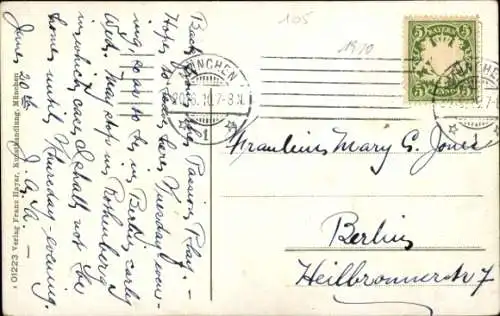 105
1910
MÜNCHEN
1
BAYERN
5 5
Fräuleins Mary C. Jones
Berlin
Heilbronnerstr 7
Back from the Passion Play. –
Hope to leave here Tuesday even-
ing, so as to be in Berlin early
Wed. May stop in Rothenberg
in which case I shall not be
home until Thursday – evening.
June 20th J. A. Ja –
01223 Verlag Franz Hayer, Kunsthandlung, München